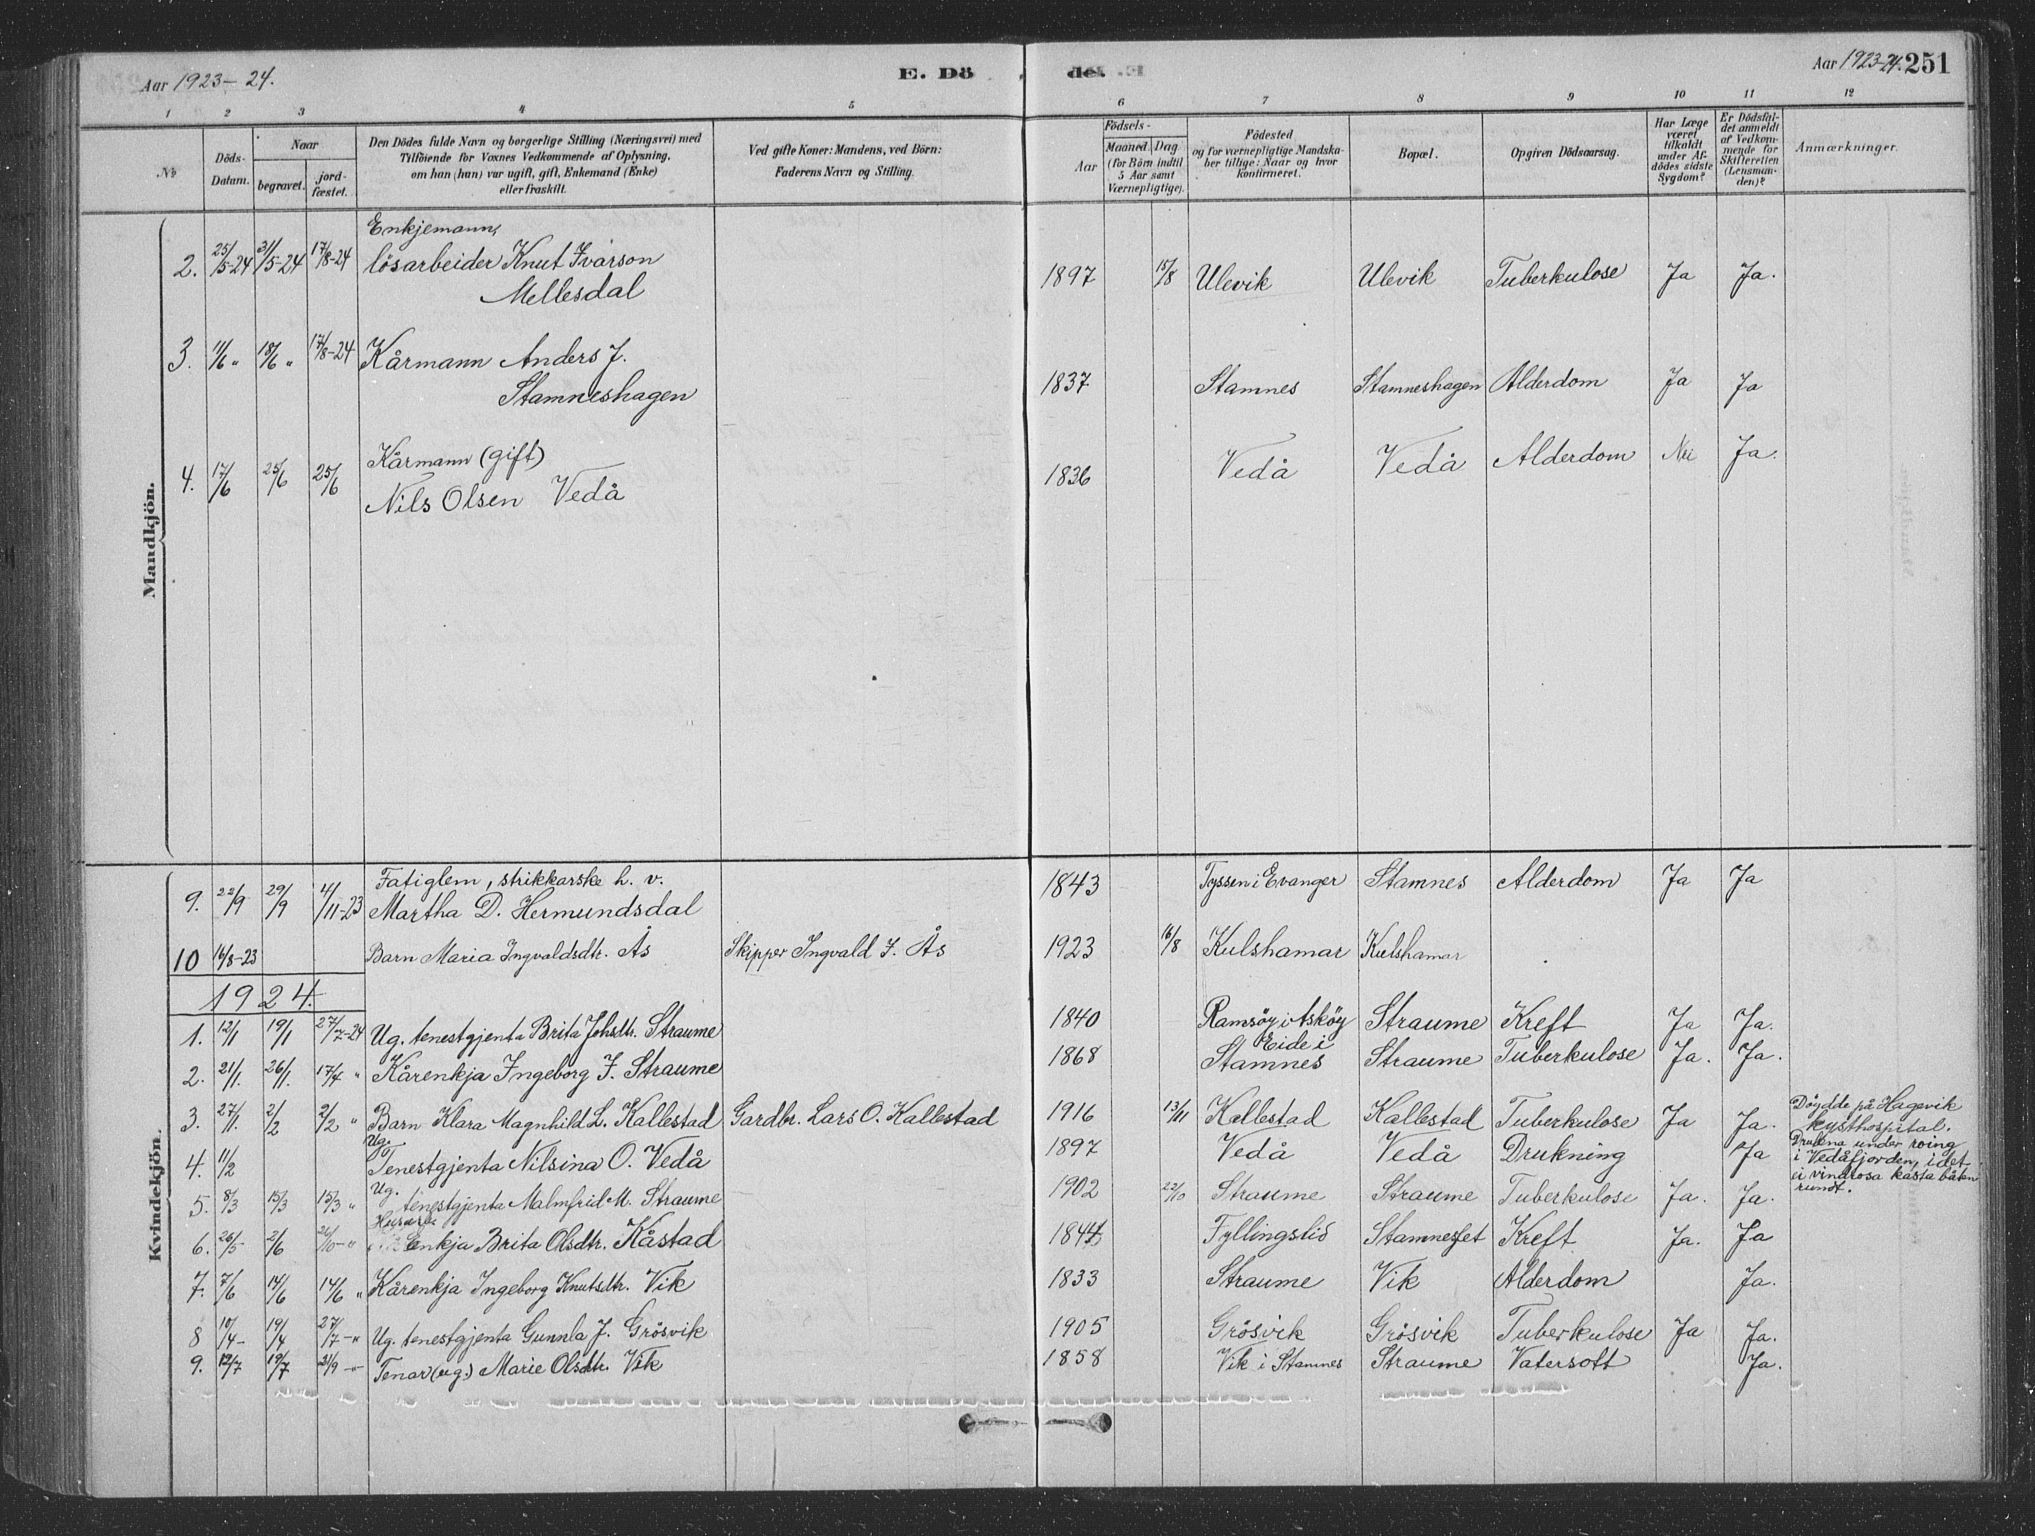 Aar 1923-24.
E. Dö
de. E
Aar 1923-24. 251
1 2 3 4 5 6 7 8 9 10 11 12
No
Döds-
Datum.
Naar
begravet.
jord-
fæstet.
Den Dödes fulde Navn og borgerlige Stilling (Næringsvei) med
Tilföiende for Voxnes Vedkommende af Oplysning,
om han (hun) var ugift, gift, Enkemand (Enke)
eller fraskilt.
Ved gifte Koner: Mandens, ved Börn:
Faderens Navn og Stilling.
Födsels-
Aar
Maaned. Dag
(for Börn indtil
5 Aar samt
Værnepligtige).
Födested
og for værnepligtige Mandska-
ber tillige: Naar og hvor
konfirmeret.
Bopæl.
Opgiven Dödsaarsag.
Har Læge
været
tilkaldt
under Af-
dödes sidste
Sygdom?
Er Dödsfal-
det anmeldt
af Vedkom-
mende for
Skifteretten
(Lensman-
den)?
Anmærkninger.
Mandkjön.
Enkjemann,
2. 25/5-24 31/5-24 17/8-24 lösarbeider Knut Ivarson
Mellesdal 1897 15/8 Ulevik Ulevik Tuberkulose Ja Ja.
3. 11/6 " 18/6 " 17/8-24 Kårmann Anders J.
Stamneshagen 1837 Stamnes Stamneshagen Alderdom Ja Ja
Kårmann (gift)
4. 17/6 25/6 25/6 Nils Olsen Vedå 1836 Vedå Vedå Alderdom Nei Ja.
Kvindekjön.
Fatiglem, strikkarske h. v.
9. 22/9 29/9 4/11-23 Martha D. Hermundsdal 1843 Tyssen i Evanger Stamnes Alderdom Ja Ja
10 16/8-23 Barn Maria Ingvaldsdtr. Ås Skipper Ingvald J. Ås 1923 16/8 Kulshamar Kulshamar
1924.
1. 12/1 19/1 27/7-24 Ug. tenestgjenta Brita Johsdtr. Straume 1840 Ramsöy i Asköy Straume Kreft Ja Ja.
2. 21/1. 26/1. 17/4 " Kårenkja Ingeborg J. Straume 1868 Eide i
Stamnes Straume Tuberkulose Ja. Ja.
3. 27/1. 2/2 2/2 " Barn Klara Magnhild L. Kallestad Gardbr. Lars O. Kallestad 1916 13/11 Kallestad Kallestad Tuberkulose Ja Ja. Döydde på Hagevik
kysthospital.
Ug.
4. 11/2 Tenestgjenta Nilsina O. Vedå 1897 Vedå Vedå Drukning Ja Drukna under roing
i Vedåfjorden, i det
ei vindrosa kasta båten
rundt.
Ug.
5. 8/3 15/3 15/3 " tenestgjenta Malmfrid M. Straume 1902 22/10 Straume Straume Tuberkulose Ja. Ja.
6. 26/5 2/6 26/10-" Enkja Brita Olsdtr. Kåstad 1844 Fyllingslid Stamneset Kreft Ja. Ja
7. 7/6 14/6 14/6 " Kårenkja Ingeborg Knutsdtr. Vik 1833 Straume Vik Alderdom Ja.
8 10/4- 19/4 27/7-" Ug. tenestgjenta Gunnla J. Grösvik 1905 Grösvik Grösvik Tuberkulose Ja Ja.
9. 12/7 19/7 21/9 -" Tenar (ug.) Marie Olsdtr. Vik 1858 Vik i Stamnes Straume Vatersott Ja.